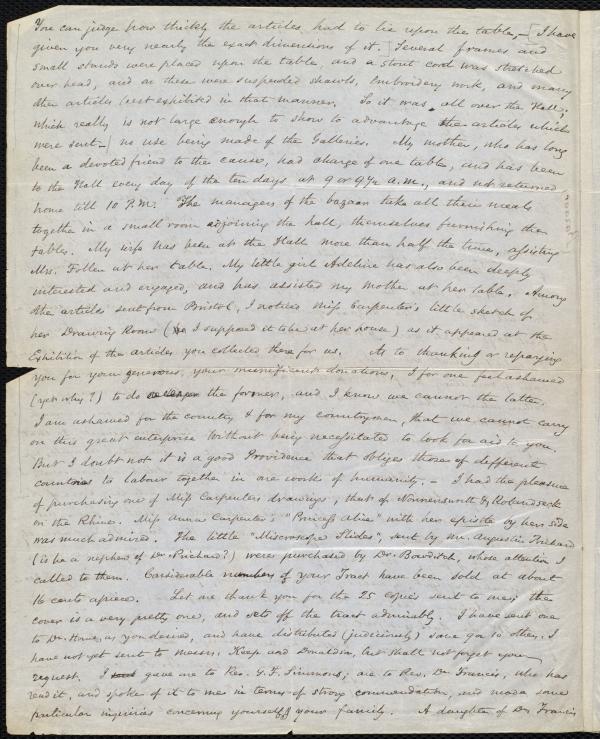 You can judge how thickly the articles had to lie upon the table, – [I have
given you very nearly the exact dimensions of it.] Several frames and
small stands were placed upon the table, and a stout cord was stretched
over head, and on these were suspended shawls, Embroidery work, and many
other articles best exhibited in that manner. So it was all over the Hall,
which really is not large enough to show to advantage the articles which
were sent – [no use being made of the Galleries. My mother, who has long
been a devoted friend to the cause, had charge of one table, and has been
to the Hall every day of the ten days at 9 or 9½ a.m., and not returned
home till 10 P.M. The managers of the bazaar take all their meals
together in a small room adjoining the hall, themselves furnishing the
tables. My wife has been at the Hall more than half the time, assisting
Mrs. Follen at her table. My little girl Adeline has also been deeply
interested and engaged, and has assisted my mother at her table. Among
the articles sent from Bristol, I noticed Miss Carpenter's little sketch of
her Drawing Room (as I supposed it to be at her house) as it appeared at the
Exhibition of the articles you collected there for us. As to thanking or repaying
you for your generous, your munificent donations, I for one feel ashamed
(yet why?) to do the former, and I know we cannot the latter.
I am ashamed for the country & for my countrymen, that we cannot carry
on this great enterprise without being necessitated to look for aid to you.
But I doubt not it is a good Providence that obliges those of different
countries to labour together in one work of humanity. – I had the pleasure
of purchasing one of Miss Carpenter's drawings, that of Nonnenswerth & Rolandseck
on the Rhine. Miss Anna Carpenter's "Princess Alice" with her epistle by her side
was much admired. The little "Miscroscope Slides", sent by Mr. Augustin Prichard
(is he a nephew of Dr. Prichard?) were purchased by Dr. Bowditch, whose attention I
called to them. Considerable numbers of your Tract have been sold at about
16 cents apiece. Let me thank you for the 25 copies sent to me; the
cover is a very pretty one, and sets off the tract admirably. I have sent one
to Dr. Howe, as you desire, and have distributed (judiciously) some 9 or 10 others. I
have not yet sent to Messrs. Keep and Donaldson, but shall not forget your
request. I gave one to Rev. G. F. Simmons; one to Rev. Dr. Francis, who has
read it, and spoke of it to me in terms of strong commendation, and made some
particular inquiries concerning yourself & your family. A daughter of Dr. Francis